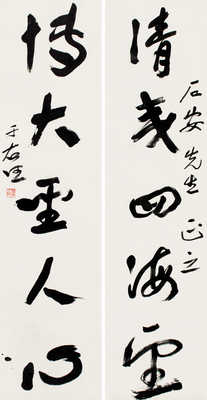 清四海望
石安先生正之
博大聖人心
于右任